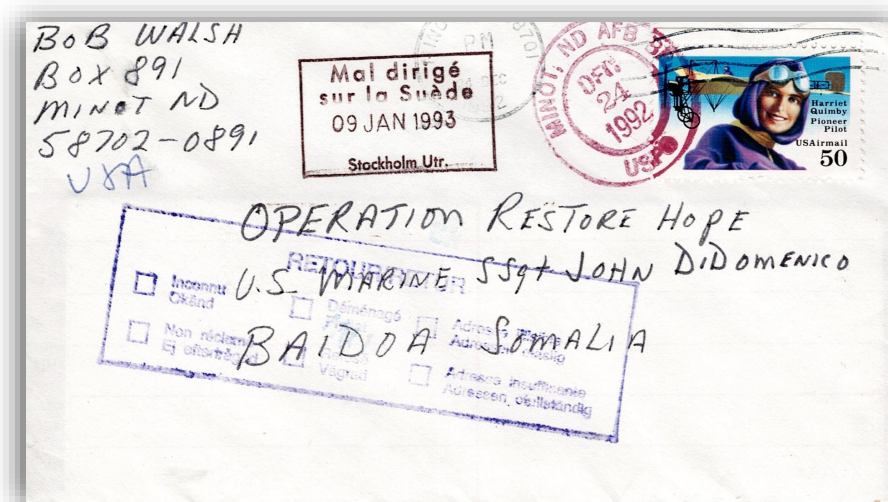 BOB WALSH
BOX 891
MINOT ND
58702-0891
USA
Mal dirigé
sur la Suède
09 JAN 1993
Stockholm Utr.
PM
DEC
MINOT, ND AFB
DEC
24
1992
USPO
Harriet
Quimby
Pioneer
Pilot
USAirmail
50
OPERATION RESTORE HOPE
U.S. MARINE SSgt JOHN DIDOMENICO
BAIDOA SOMALIA
RETOUR
Inconnu
Okänd
Déménagé
Non réclamé
Ej efterfrågad
Vägrad
Adresse insuffisante
Adressen ofullständig